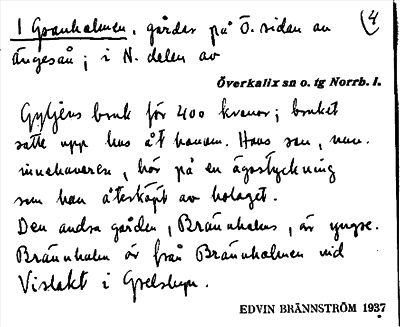 1 Granholmen, gårdar på Ö. sidan av (4
Ängesån; i N. delen av
Överkalix sn o. tg Norrb. l.
Gyljens bruk för 400 kronor; bruket
satte upp hus åt honom. Hans son, nuv.
innehavaren, bor på en ägostyckning
som han återköpt av bolaget.
Den andra gården, Brännholm, är yngre.
Brännholm är från Brännholmen vid
Vislakt i
EDVIN BRÄNNSTRÖM 1937